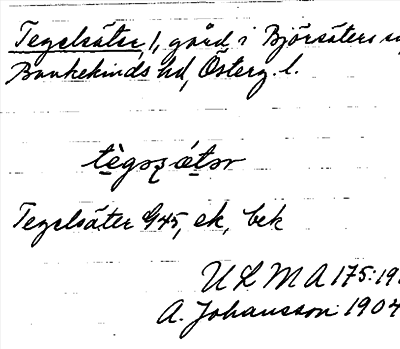 Tegelsäter, 1, gård i Björsäters
Bankekinds hd, Österg. l.
tègsʒätər
Tegelsäter G45, ek, bek
ULMA 175:19
A. Johansson 1904